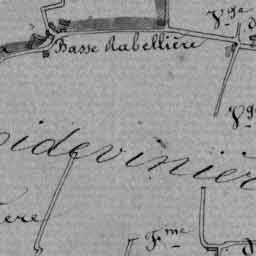 Vge
Basse Rabellière
Vg
idevinièr
ère
Fme